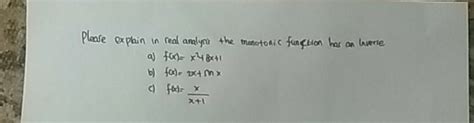 Please explain in real analysis the monotonic function has an Inverse
a) f(x)= x²+8x+1
b) f(x)= 2x+ln x
c) f(x)= x/x+1